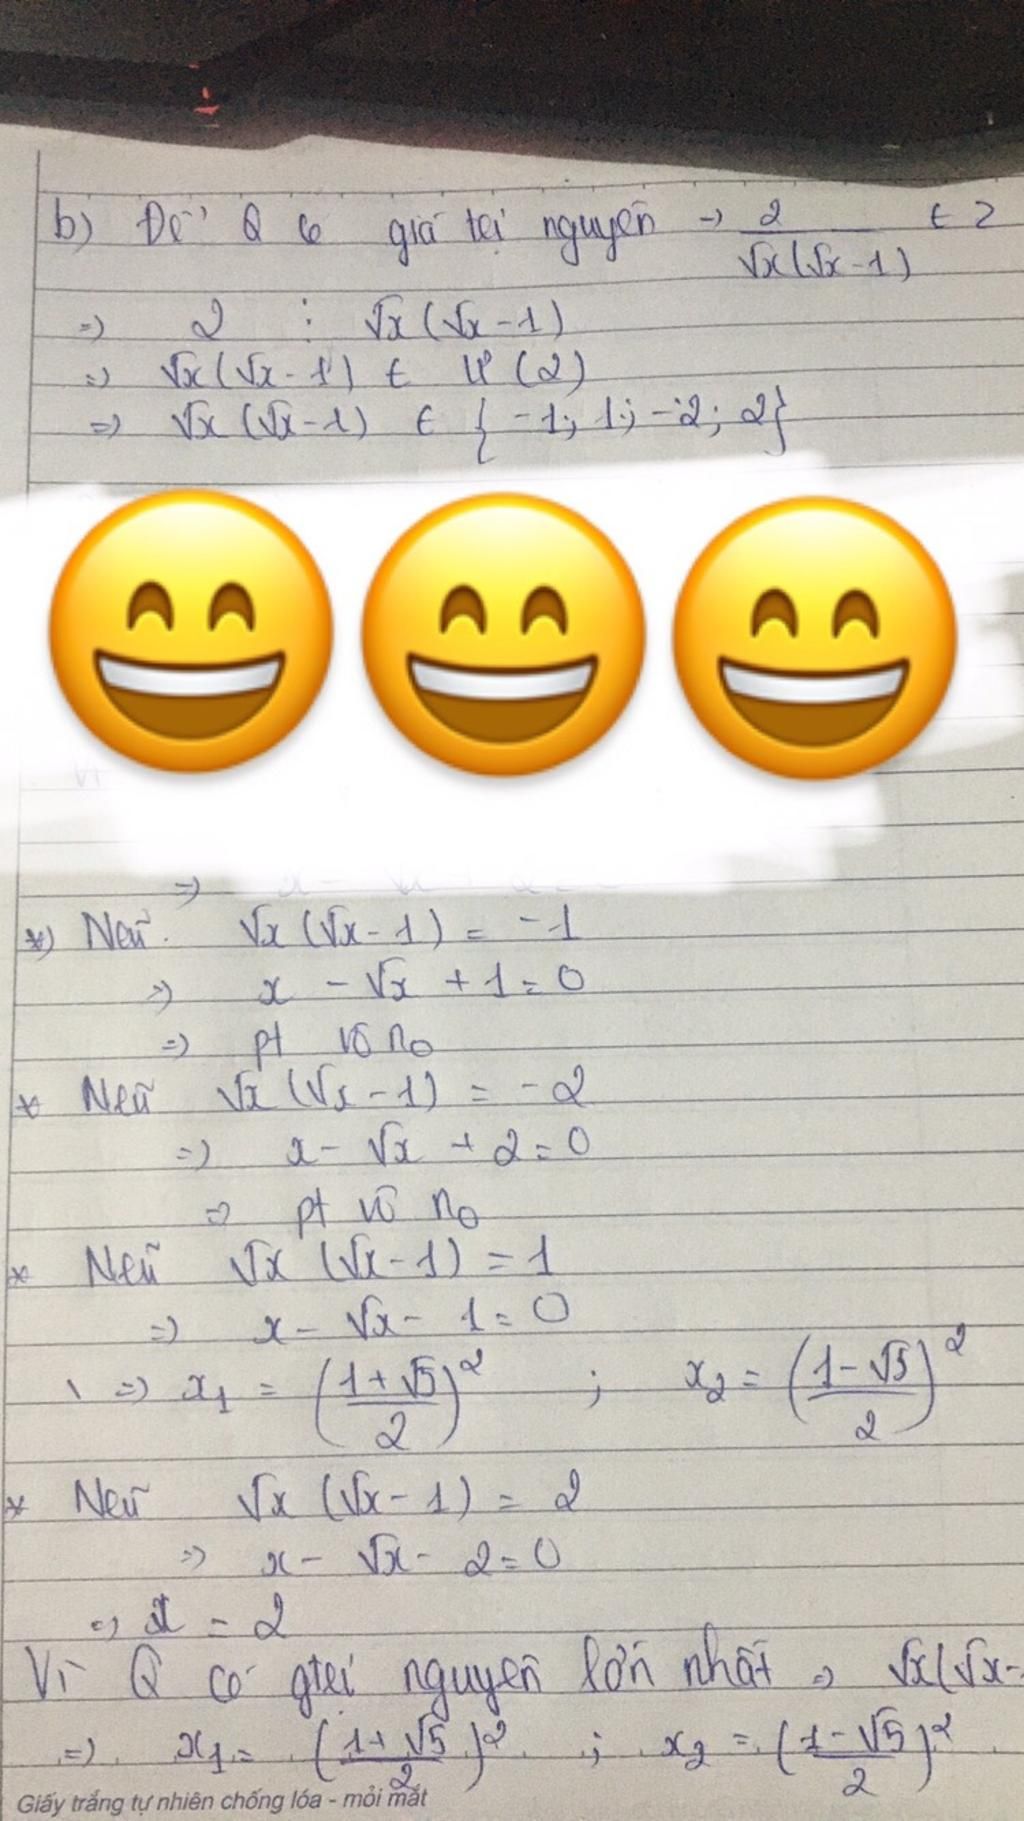 b) Để Q có giá trị nguyên → 2/(√x(√x-1)) ∈ Z
=) 2 ⋮ √x(√x-1)
=) √x(√x-1) ∈ Ư(2)
=) √x(√x-1) ∈ {-1; 1; -2; 2}
=)
*) Nếu √x(√x-1) = -1
=) x - √x + 1 = 0
=) pt vô no
* Nếu √x(√x-1) = -2
=) x - √x + 2 = 0
=) pt vô no
* Nếu √x(√x-1) = 1
=) x - √x - 1 = 0
=) x₁ = ((1+√5)/2)² ; x₂ = ((1-√5)/2)²
* Nếu √x(√x-1) = 2
=) x - √x - 2 = 0
=) x = 2
Vì Q có gtrị nguyên lớn nhất => √x(√x-
=) x₁ = ((1+√5)/2)² ; x₂ = ((1-√5)/2)²
Giấy trắng tự nhiên chống lóa - mỏi mắt